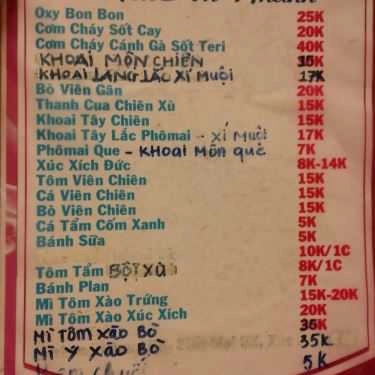 Oxy Bon Bon 25K
Cơm Cháy Sốt Cay 20K
Cơm Cháy Cánh Gà Sốt Teri 40K
KHOAI MÔN CHIÊN
KHOAI LANG LẮC XÍ MUỘI 17K
Bò Viên Gân 20K
Thanh Cua Chiên Xù 15K
Khoai Tây Chiên 15K
Khoai Tây Lắc Phômai - XÍ MUỘI 17K
Phômai Que - KHOAI MÔN QUÊ 7K
Xúc Xích Đức 8K-14K
Tôm Viên Chiên 15K
Cá Viên Chiên 15K
Bò Viên Chiên 15K
Cá Tẩm Cốm Xanh 5K
Bánh Sữa 5K
10K/1C
Tôm Tẩm BỘT XÙ 8K/1C
Bánh Plan 7K
Mì Tôm Xào Trứng 15K-20K
Mì Tôm Xào Xúc Xích 20K
MÌ TÔM XÀO BÒ 35K
MÌ Ý XÀO BÒ 35K
5K